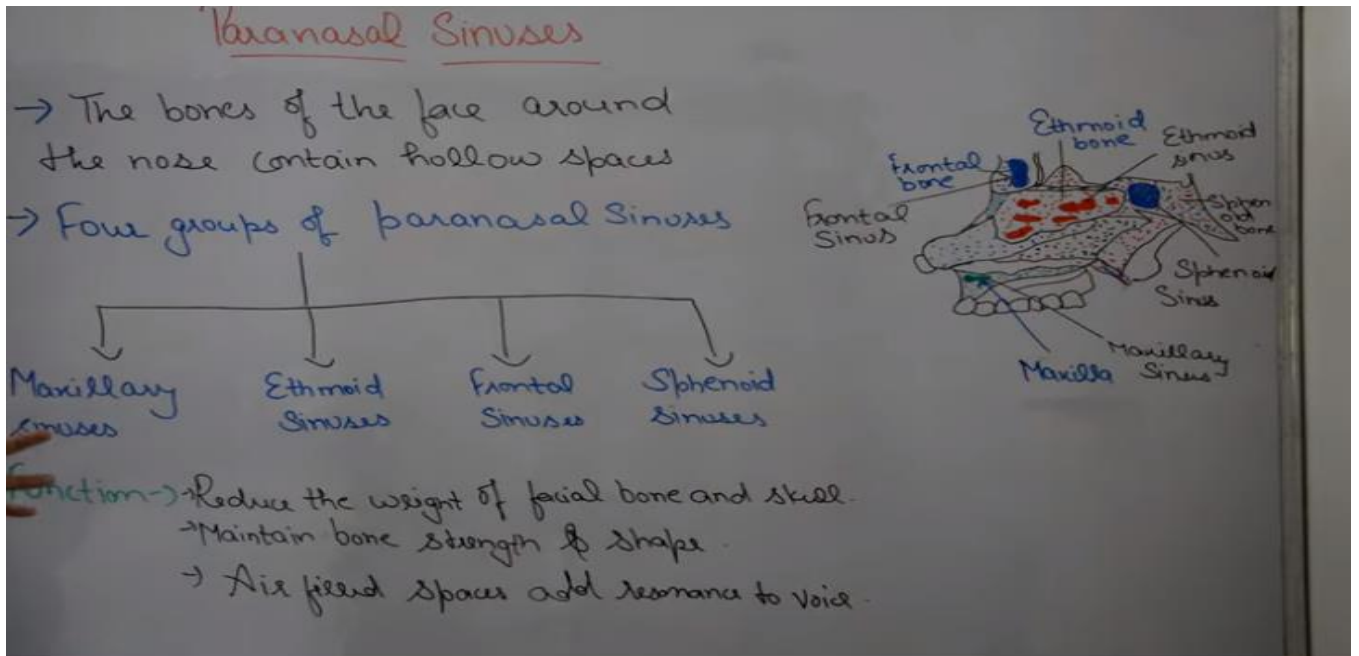 Paranasal Sinuses
→ The bones of the face around
the nose contain hollow spaces
→ Four groups of paranasal Sinuses
Maxillary
sinuses
Ethmoid
Sinuses
Frontal
Sinuses
Sphenoid
Sinuses
Function →
→ Reduce the weight of facial bone and skull.
→ Maintain bone strength & shape.
→ Air filled spaces add resonance to voice.
Ethmoid
bone
Ethmoid
sinus
Frontal
bone
Frontal
Sinus
Sphen
oid
bone
Sphenoid
Sinus
Maxillary
Sinus
Maxilla